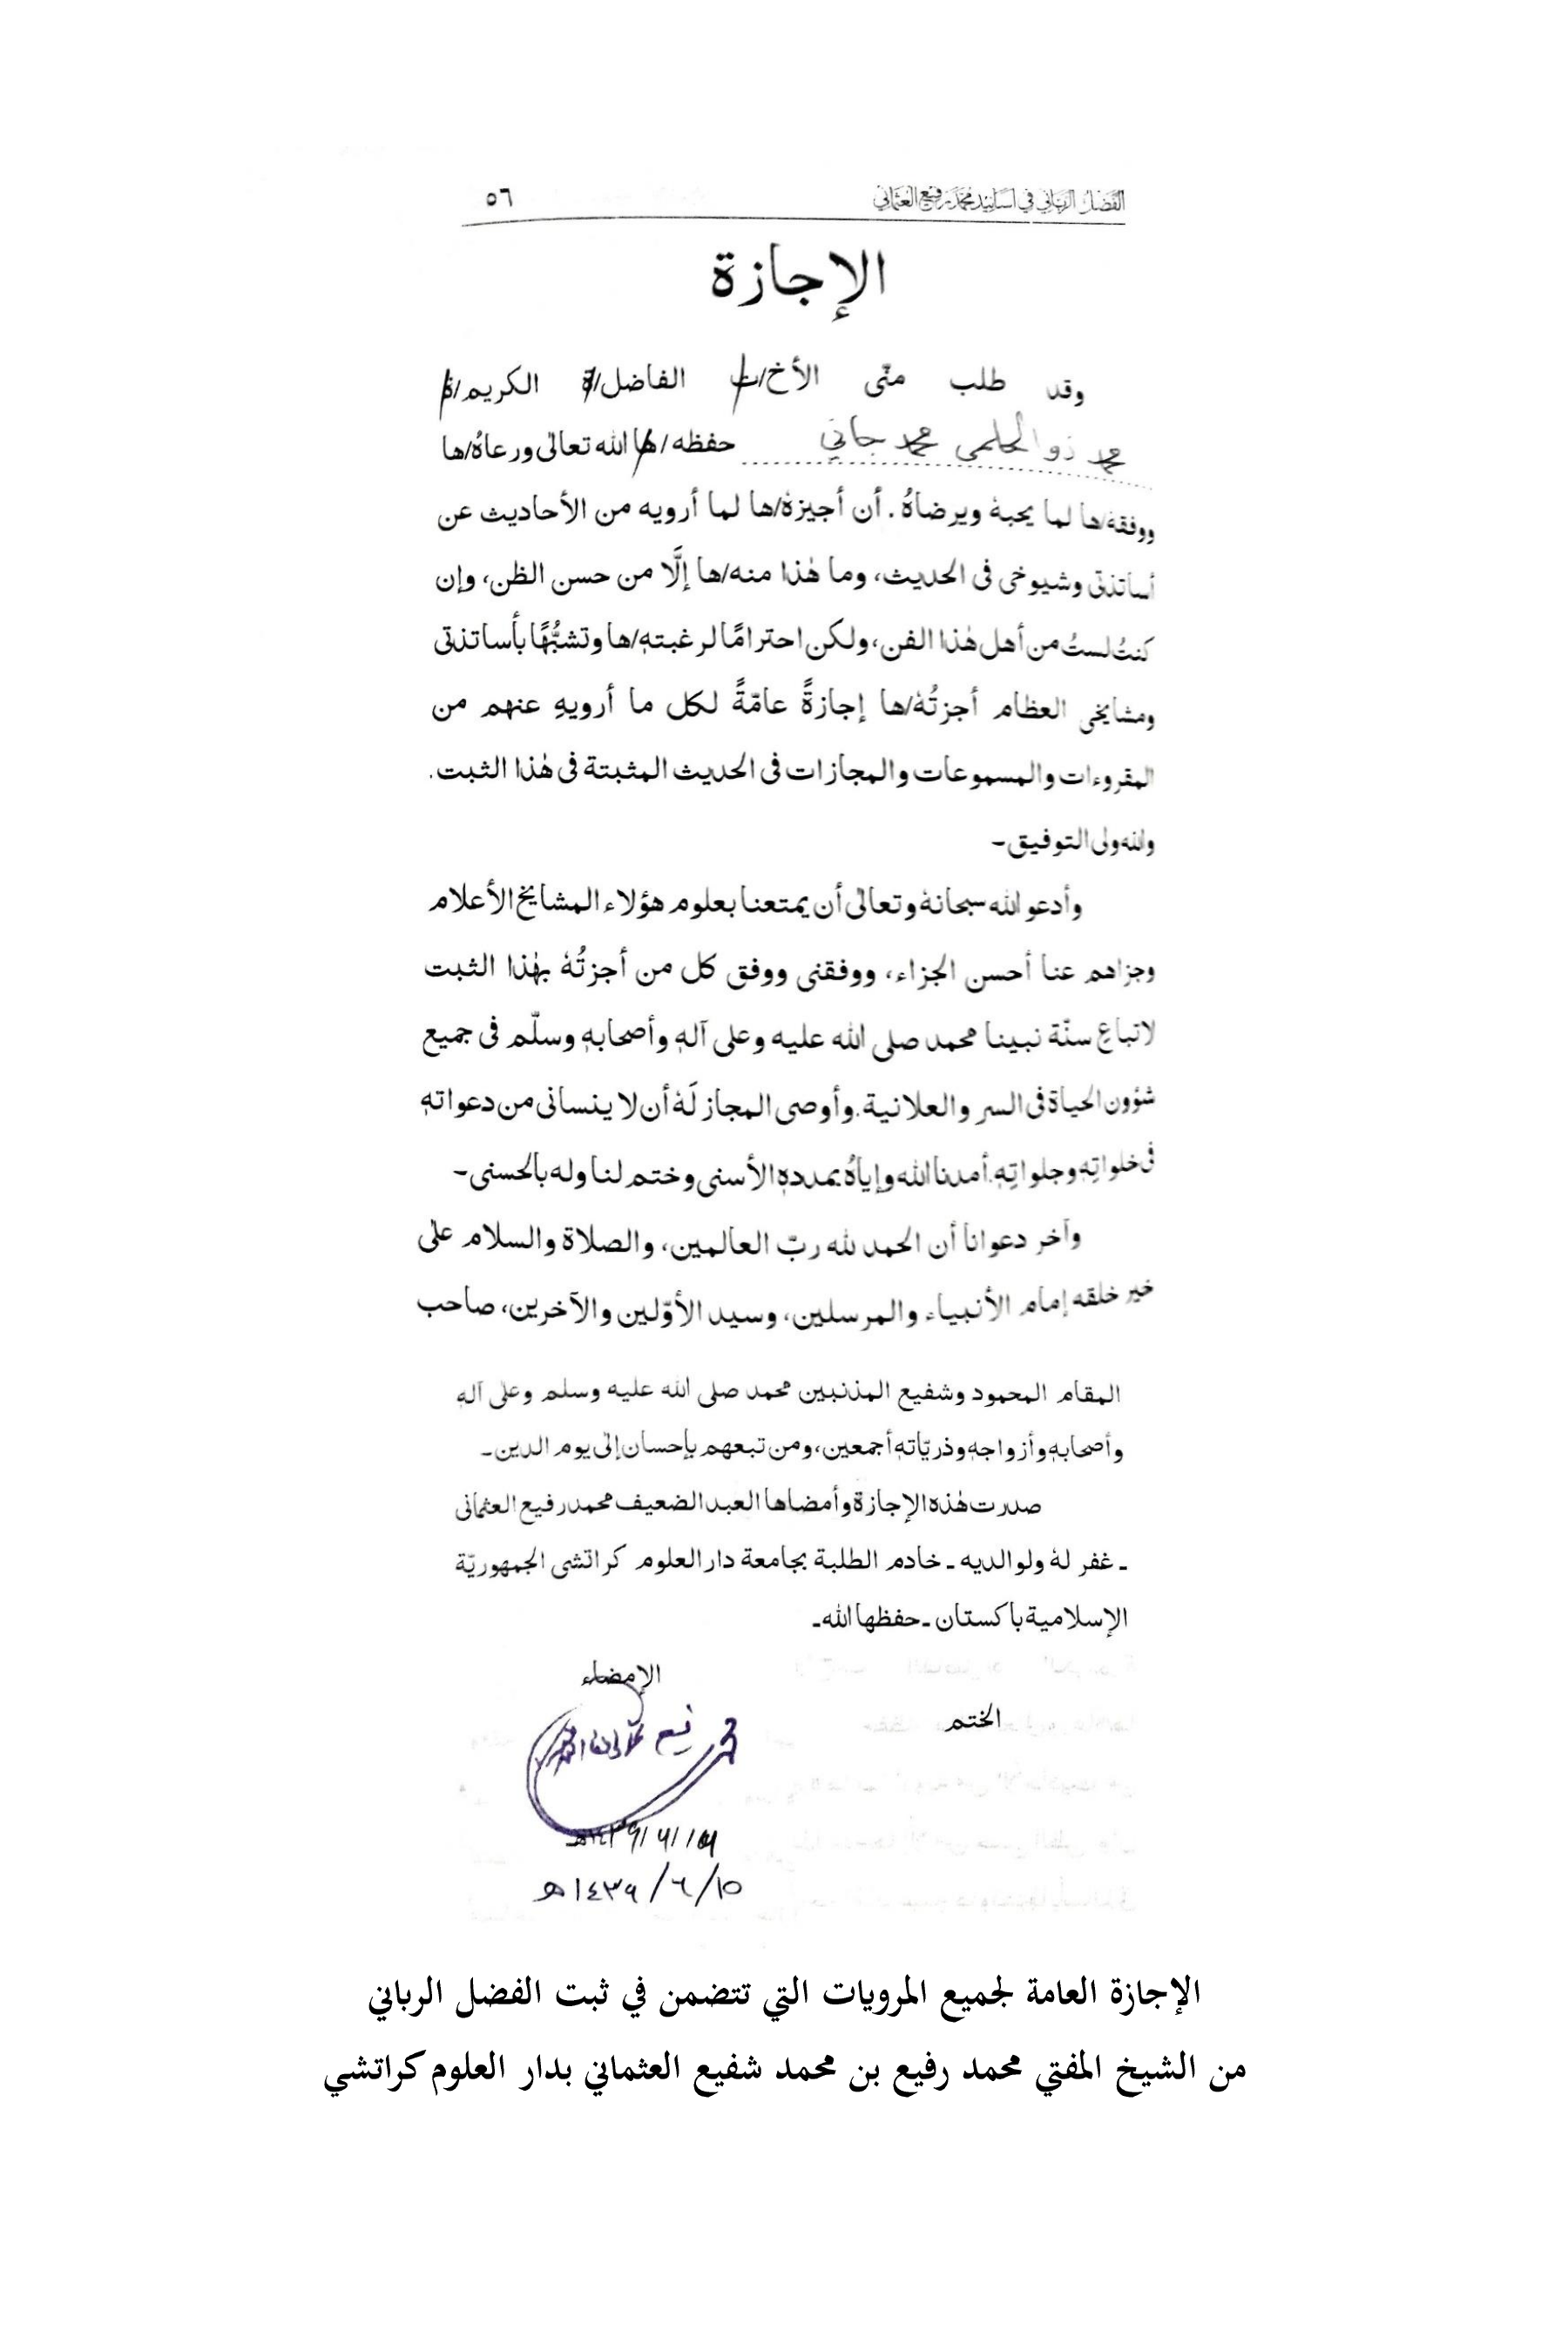 الفضل الرباني في أسانيد محمد رفيع العثماني ٥٦
الإجازة
وقد طلب منّى الأخ/ت الفاضل/ة الكريم/ة
محمد ذو الحلمى محمد جاني حفظه/ها الله تعالىٰ ورعاهُ/ها
ووفقهٗ/ها لما يحبهٗ ويرضاهُ. أن أجيزهٗ/ها لما أرويه من الأحاديث عن
أساتذتى وشيوخى فى الحديث، وما هٰذا منه/ها إلَّا من حسن الظن، وإن
كنتُ لستُ من أهل هٰذا الفن، ولكن احترامًا لرغبتهٖ/ها وتشبُّهًا بأساتذتى
ومشايخى العظام أجزتُهٗ/ها إجازةً عامّةً لكل ما أرويهِ عنهم من
المقروءات والمسموعات والمجازات فى الحديث المثبتة فى هٰذا الثبت.
والله ولى التوفيق-
وأدعو الله سبحانهٗ وتعالىٰ أن يمتعنا بعلوم هؤلاء المشايخ الأعلام
وجزاهم عنا أحسن الجزاء، ووفقنى ووفق كل من أجزتُهٗ بهٰذا الثبت
لاتباعِ سنّة نبينا محمد صلى الله عليه وعلى آلهٖ وأصحابهٖ وسلّم فى جميع
شؤون الحياة فى السر والعلانية. وأوصى المجاز لَهٗ أن لا ينسانى من دعواتهٖ
فى خلواتِهٖ وجلواتِهٖ. أمدنا الله وإياهُ بمددهٖ الأسنى وختم لنا وله بالحسنى-
وآخر دعوانا أن الحمد لله ربّ العالمين، والصلاة والسلام علىٰ
خير خلقه إمام الأنبياء والمرسلين، وسيد الأوّلين والآخرين، صاحب
المقام المحمود وشفيع المذنبين محمد صلى الله عليه وسلم وعلىٰ آلهٖ
وأصحابهٖ وأزواجهٖ وذريّاتهٖ أجمعين، ومن تبعهم بإحسان إلىٰ يوم الدين-
صدرت هٰذه الإجازة وأمضاها العبد الضعيف محمد رفيع العثمانى
- غفر لهٗ ولوالديه - خادم الطلبة بجامعة دار العلوم كراتشى الجمهوريّة
الإسلامية باكستان - حفظها الله-
الإمضاء
الختم
محمد رفيع
١٤٣٩/٦/١٥هـ
الإجازة العامة لجميع المرويات التي تتضمن في ثبت الفضل الرباني
من الشيخ المفتي محمد رفيع بن محمد شفيع العثماني بدار العلوم كراتشي